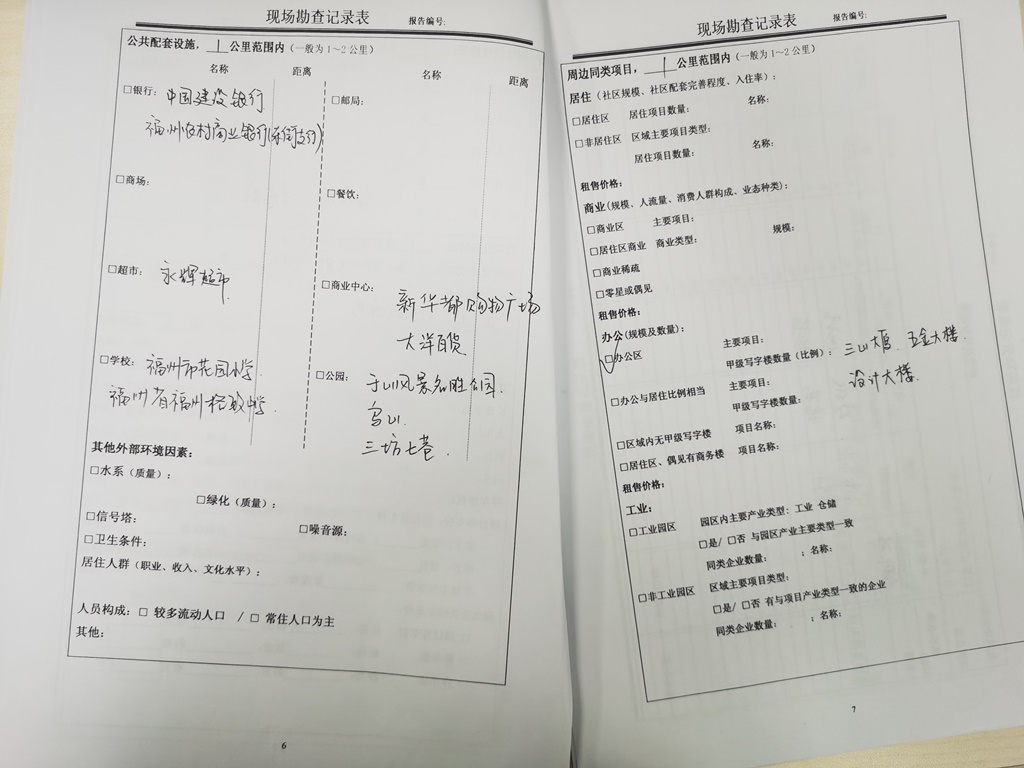 现场勘查记录表
报告编号:
公共配套设施, 1 公里范围内(一般为1~2公里)
名称 距离 名称 距离
□银行: 中国建设银行 □邮局:
福州农村商业银行(
支行)
□商场: □餐饮:
□超市: 永辉超市. □商业中心: 新华都购物广场
大洋百货
□学校: 福州市花园小学. □公园: 于山风景名胜公园.
福州省福州格致中学. 乌山.
三坊七巷.
其他外部环境因素:
□水系(质量):
□绿化(质量):
□信号塔: □噪音源:
□卫生条件:
居住人群(职业、收入、文化水平):
人员构成: □ 较多流动人口 / □ 常住人口为主
其他:
6
现场勘查记录表
报告编号:
周边同类项目, 1 公里范围内(一般为1~2公里)
居住(社区规模、社区配套完善程度、入住率):
□居住区 居住项目数量: 名称:
□非居住区 区域主要项目类型:
居住项目数量: 名称:
租售价格:
商业(规模、人流量、消费人群构成、业态种类):
□商业区 主要项目: 规模:
□居住区商业 商业类型:
□商业稀疏
□零星或偶见
租售价格:
办公(规模及数量):
□办公区 主要项目:
甲级写字楼数量(比例): 三山大厦、五金大楼.
□办公与居住比例相当 主要项目: 设计大楼.
甲级写字楼数量:
□区域内无甲级写字楼 项目名称:
□居住区、偶见有商务楼 项目名称:
租售价格:
工业:
□工业园区 园区内主要产业类型: 工业 仓储
□是/ □否 与园区产业主要类型一致
同类企业数量: ; 名称:
□非工业园区 区域主要项目类型:
□是/ □否 有与项目产业类型一致的企业
同类企业数量: ; 名称:
7